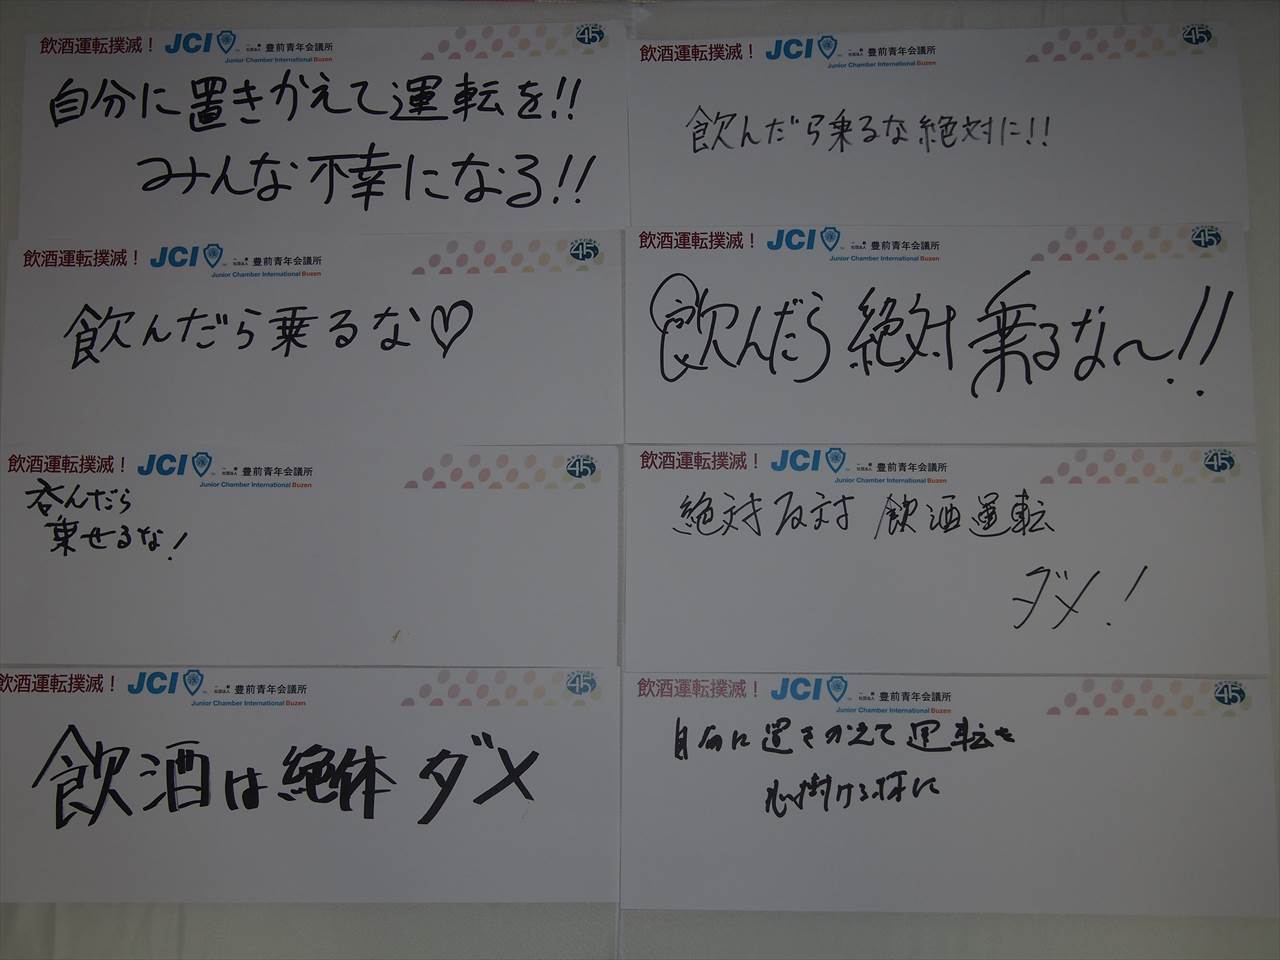 飲酒運転撲滅！ JCI 一般社団法人 豊前青年会議所 45
Junior Chamber International Buzen
自分に置きかえて運転を!!
みんな不幸になる!!
飲酒運転撲滅！ JCI 一般社団法人 豊前青年会議所 45
Junior Chamber International Buzen
飲んだら乗るな絶対に!!
飲酒運転撲滅！ JCI 一般社団法人 豊前青年会議所 45
Junior Chamber International Buzen
飲んだら乗るな♡
飲酒運転撲滅！ JCI 一般社団法人 豊前青年会議所 45
Junior Chamber International Buzen
飲んだら絶対乗るな〜!!
飲酒運転撲滅！ JCI 一般社団法人 豊前青年会議所 45
Junior Chamber International Buzen
呑んだら
乗せるな!
飲酒運転撲滅！ JCI 一般社団法人 豊前青年会議所 45
Junior Chamber International Buzen
絶対反対 飲酒運転
ダメ!
飲酒運転撲滅！ JCI 一般社団法人 豊前青年会議所 45
Junior Chamber International Buzen
飲酒は絶体ダメ
飲酒運転撲滅！ JCI 一般社団法人 豊前青年会議所 45
Junior Chamber International Buzen
自分に置きかえて運転を
心掛ける様に